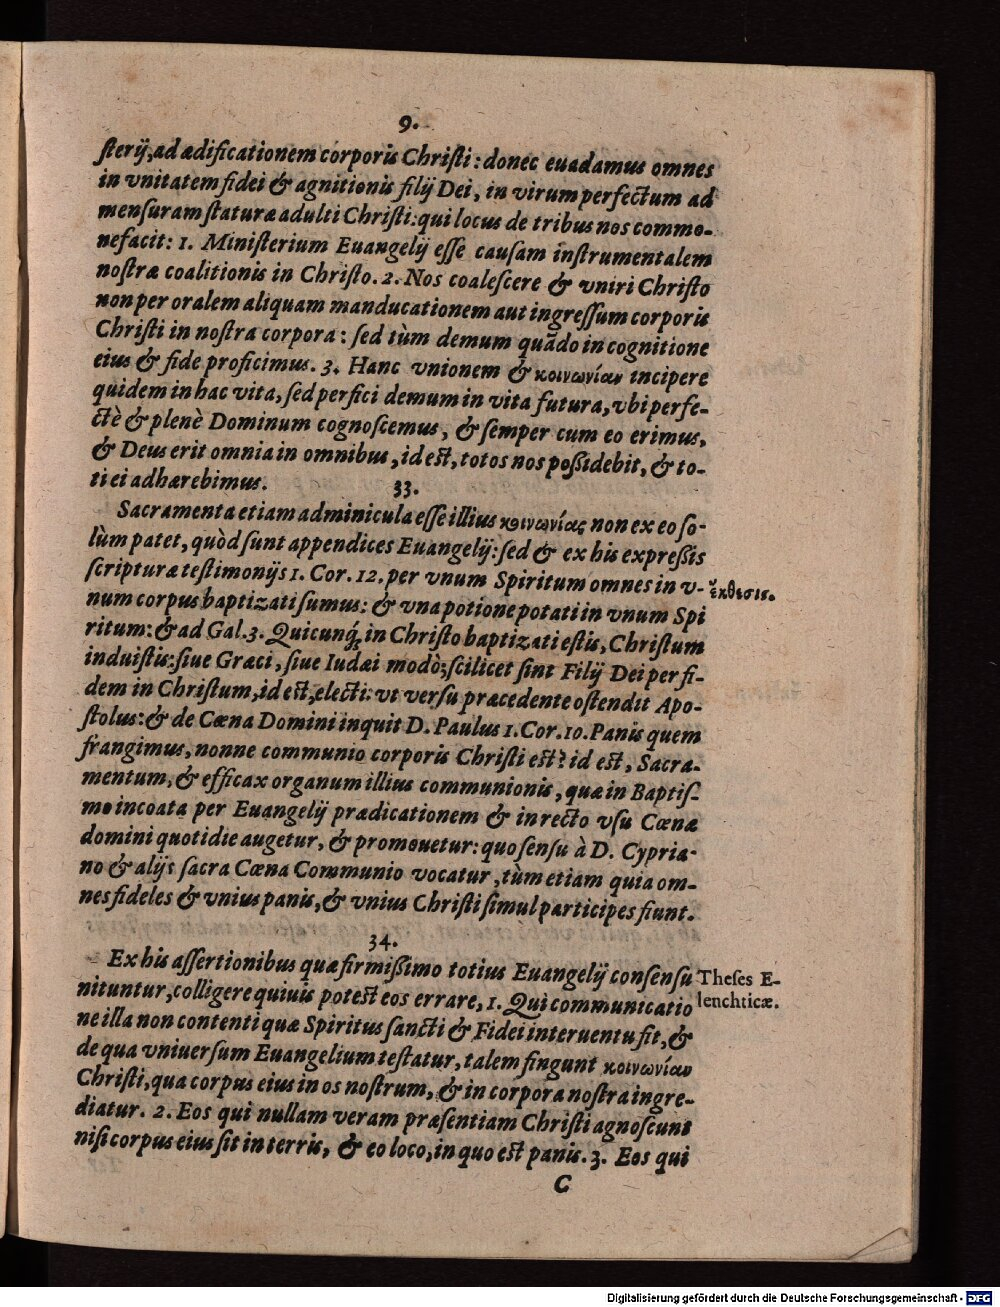 9.
sterij, ad ædificationem corporis Christi: donec euadamus omnes
in vnitatem fidei & agnitionis filij Dei, in virum perfectum ad
mensuram staturæ adulti Christi: qui locus de tribus nos commo-
nefacit: 1. Ministerium Euangelij esse causam instrumentalem
nostræ coalitionis in Christo. 2. Nos coalescere & vniri Christo
non per oralem aliquam manducationem aut ingressum corporis
Christi in nostra corpora: sed tùm demum quãdo in cognitione
eius & fide proficimus. 3. Hanc vnionem & κοινωνίαν incipere
quidem in hac vita, sed perfici demum in vita futura, vbi perfe-
ctè & plenè Dominum cognoscemus, & semper cum eo erimus,
& Deus erit omnia in omnibus, id est, totos nos possidebit, & to-
ti ei adhærebimus.
33.
Sacramenta etiam adminicula esse illius κοινωνίας non ex eo so-
lùm patet, quòd sunt appendices Euangelij: sed & ex his expressis
scripturæ testimonijs 1. Cor. 12. per vnum Spiritum omnes in v-
ἔκθεσις.
num corpus baptizati sumus: & vna potione potati in vnum Spi
ritum: & ad Gal. 3. Quicunq́ in Christo baptizati estis, Christum
induistis: siue Græci, siue Iudæi modò; scilicet sint Filij Dei per fi-
dem in Christum, id est, electi: vt versu præcedente ostendit Apo-
stolus: & de Cœna Domini inquit D. Paulus 1. Cor. 10. Panis quem
frangimus, nonne communio corporis Christi est? id est, Sacra-
mentum, & efficax organum illius communionis, quæ in Baptis-
mo incoata per Euangelij prædicationem & in recto vsu Cœnæ
domini quotidie augetur, & promouetur: quo sensu à D. Cypria-
no & alijs sacra Cœna Communio vocatur, tùm etiam quia om-
nes fideles & vnius panis, & vnius Christi simul participes fiunt.
34.
Ex his assertionibus quæ firmissimo totius Euangelij consensu
Theses E-
lenchticæ.
nituntur, colligere quiuis potest eos errare, 1. Qui communicatio
ne illa non contenti quæ Spiritus sancti & Fidei interuentu fit, &
de qua vniuersum Euangelium testatur, talem fingunt κοινωνίαν
Christi, qua corpus eius in os nostrum, & in corpora nostra ingre-
diatur. 2. Eos qui nullam veram præsentiam Christi agnoscunt
nisi corpus eius sit in terris, & eo loco, in quo est panis. 3. Eos qui
C
Digitalisierung gefördert durch die Deutsche Forschungsgemeinschaft - DFG